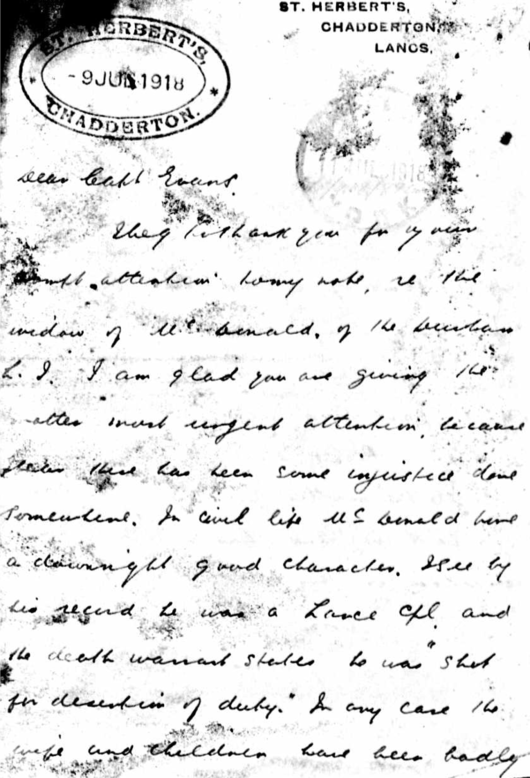 ST. HERBERT'S,
CHADDERTON,
LANCS.
ST. HERBERT'S,
- 9 JUL 1918
CHADDERTON.
1918
Dear Capt Evans.
I beg to thank you for your
prompt attention to my note, re the
widow of McDonald, of the Durham
L. I. I am glad you are giving the
matter most urgent attention, because
I fear there has been some injustice done
somewhere. In civil life McDonald bore
a downright good character. I see by
his record he was a Lance Cpl and
the death warrant states he was "shot
for desertion of duty." In any case the
wife and children have been badly